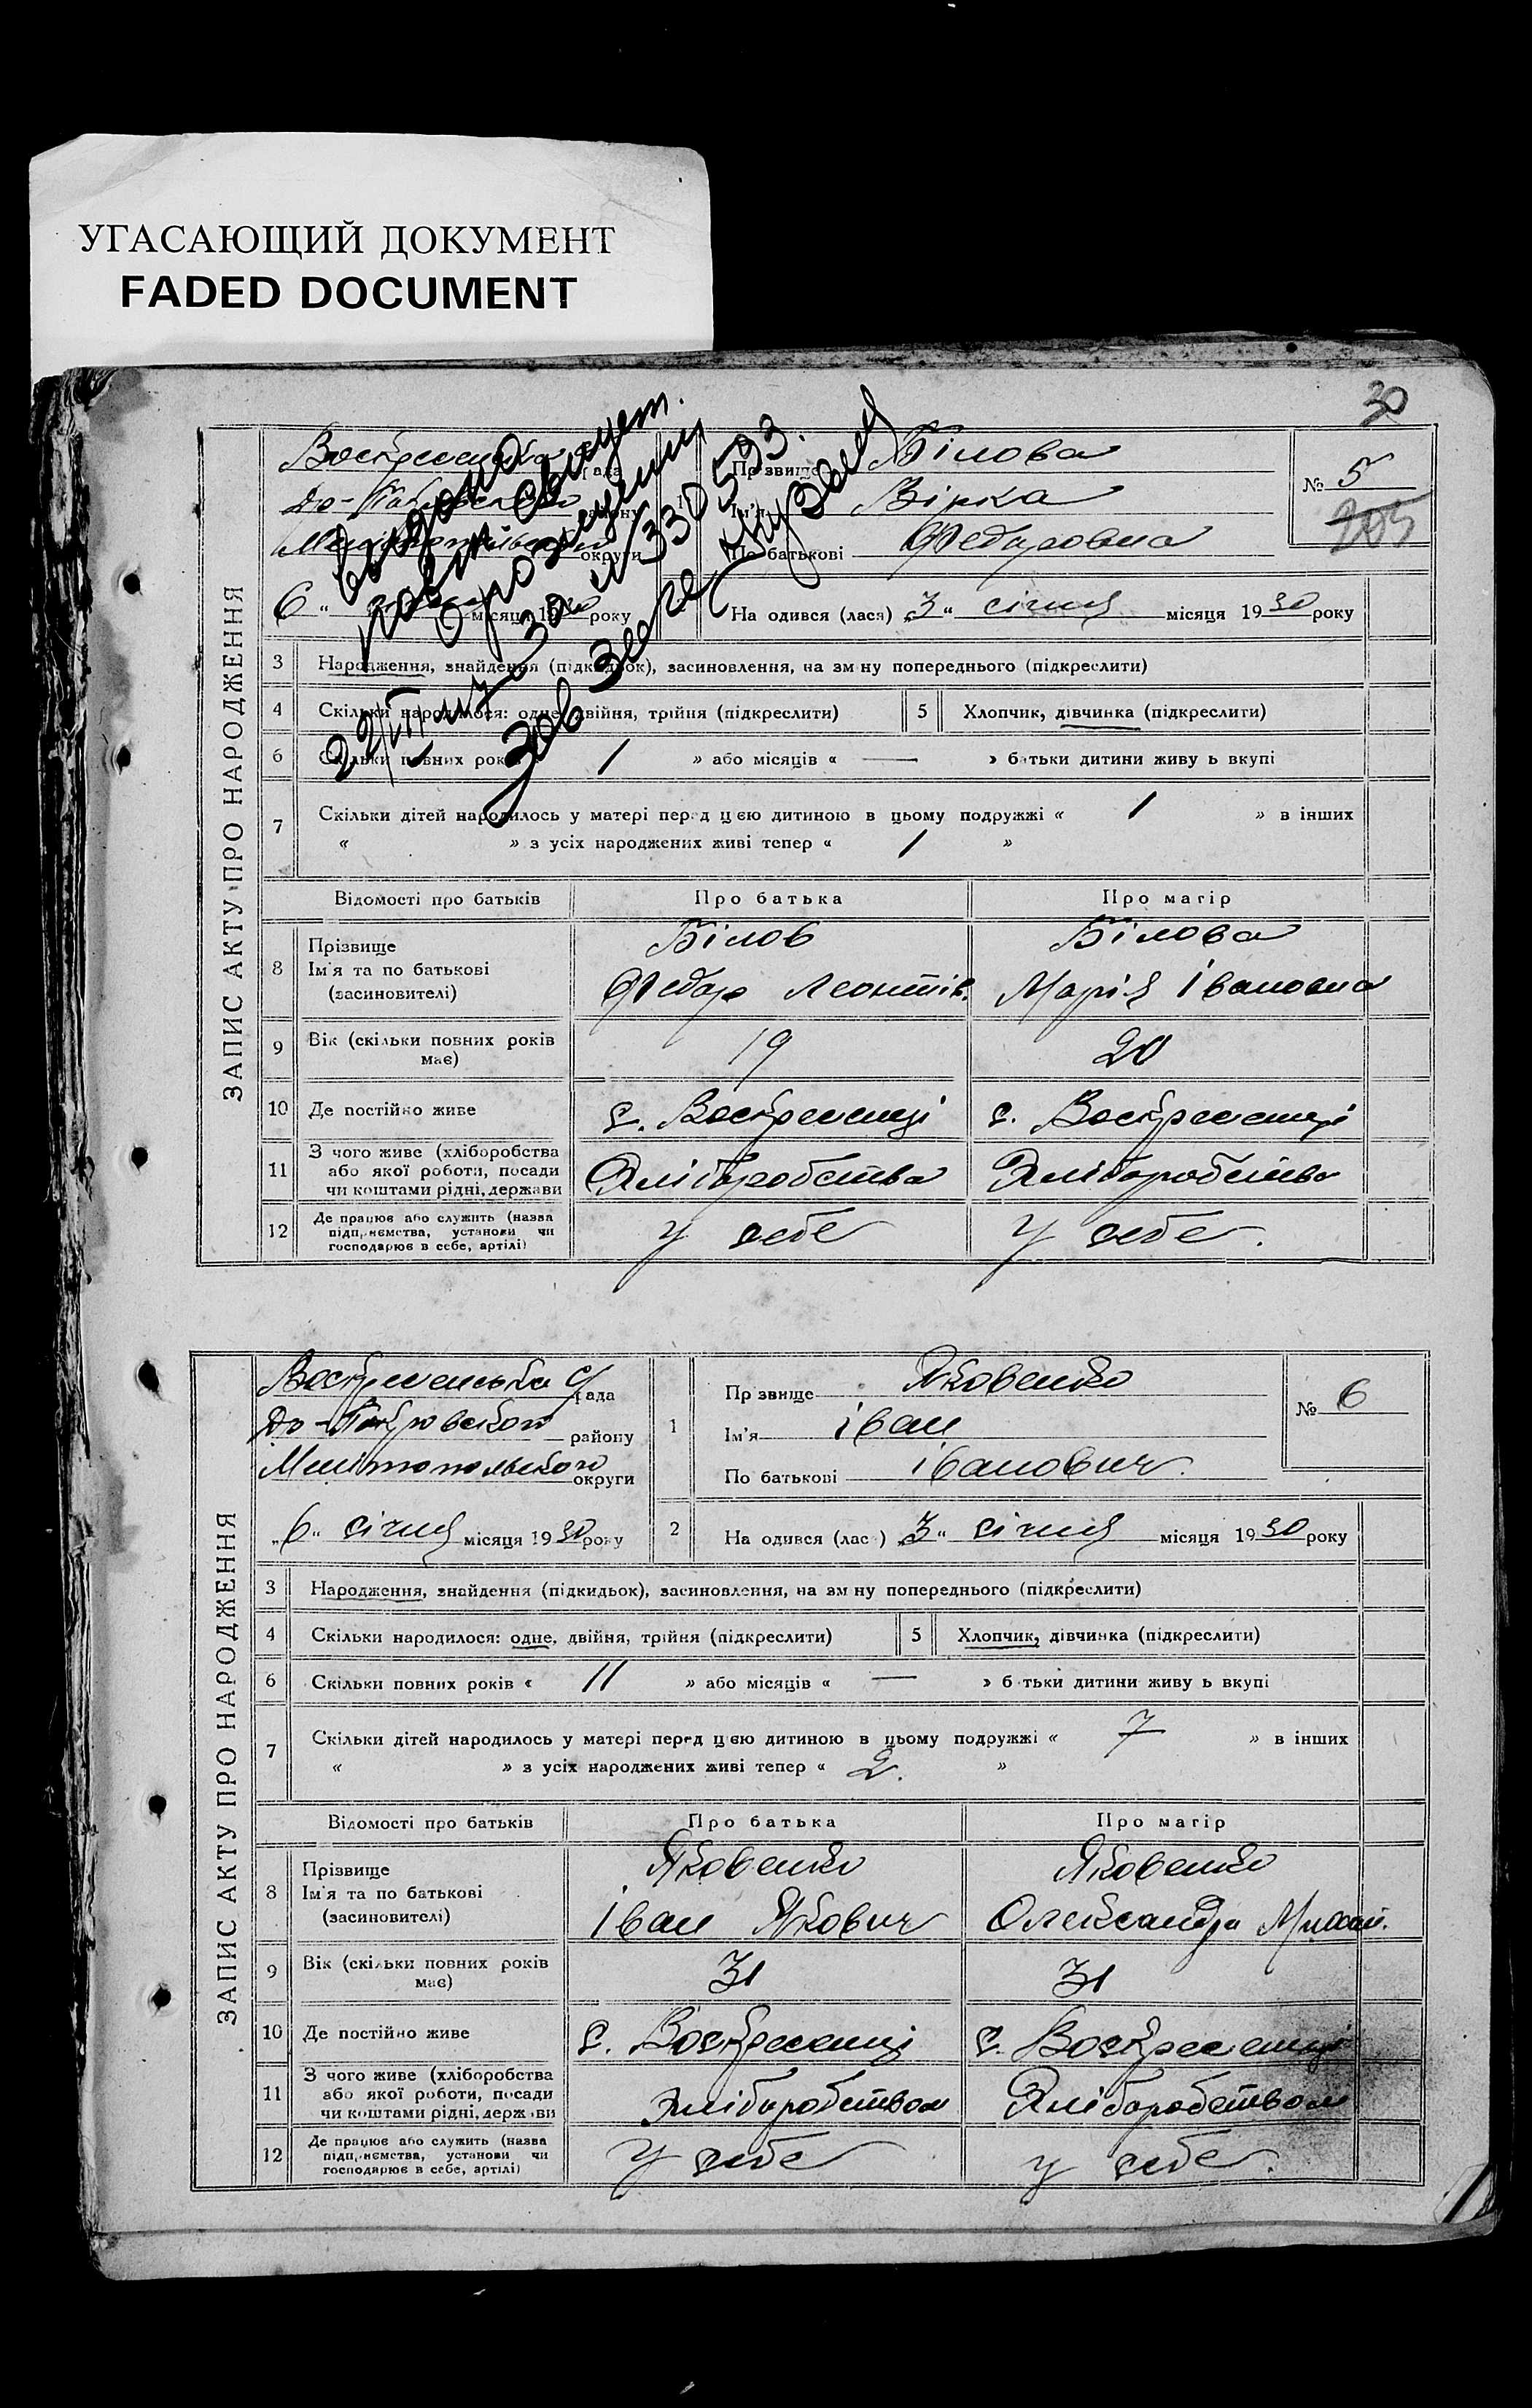 УГАСАЮЩИЙ ДОКУМЕНТ
FADED DOCUMENT
30
ЗАПИС АКТУ ПРО НАРОДЖЕННЯ
рада
району
округи
6 " місяця 1930 року
Прізвище Білова
Ім'я Вірка
По батькові Федоровна
№ 5
205
На одився (лася) „3" січня місяця 1930 року
повт. свідует.
о рождении
22/II
за № 330593.
Зав Загс
3 Народження, знайдення (підкидьок), засиновлення, на зм ну попереднього (підкреслити)
4 Скільки народилося: одне, двійня, трійня (підкреслити) 5 Хлопчик, дівчинка (підкреслити)
6 Скільки повних років 1 » або місяців « — » батьки дитини живу ь вкупі
7 Скільки дітей народилось у матері перед цією дитиною в цьому подружжі « 1 » в інших
« » з усіх народжених живі тепер « 1 »
Відомості про батьків Про батька Про матір
8 Прізвище Білов Білова
Ім'я та по батькові Федор Леонтів. Марія Івановна
(засиновителі)
9 Вік (скільки повних років має) 19 20
10 Де постійно живе с. Воскресенці с. Воскресенці
11 З чого живе (хліборобства або якої роботи, посади чи коштами рідні, держави Хліборобства Хліборобства
12 Де працює або служить (назва підприємства, установи чи господарює в себе, артілі) У себе У себе.
ЗАПИС АКТУ ПРО НАРОДЖЕННЯ
Воскресенська с/рада
До-Покровського району
Мелітопольського округи
„6" січня місяця 1930 року
1 Пр звище Яковенко
Ім'я Іван
По батькові Іванович.
№ 6
2 На одився (лас ) „3" січня місяця 1930 року
3 Народження, знайдення (підкидьок), засиновлення, на зм ну попереднього (підкреслити)
4 Скільки народилося: одне, двійня, трійня (підкреслити) 5 Хлопчик, дівчинка (підкреслити)
6 Скільки повних років « 11 » або місяців « — » б тьки дитини живу ь вкупі
7 Скільки дітей народилось у матері перед цією дитиною в цьому подружжі « 7 » в інших
« » з усіх народжених живі тепер « 2. »
Відомості про батьків Про батька Про матір
8 Прізвище Яковенко Яковенко
Ім'я та по батькові Іван Якович Олександра Михай.
(засиновителі)
9 Вік (скільки повних років має) 31 31
10 Де постійно живе с. Воскресенці с. Воскресенці
11 З чого живе (хліборобства або якої роботи, посади чи коштами рідні, держ ви хліборобством Хліборобством
12 Де працює або служить (назва підприємства, установи чи господарює в себе, артілі) У себе у себе.